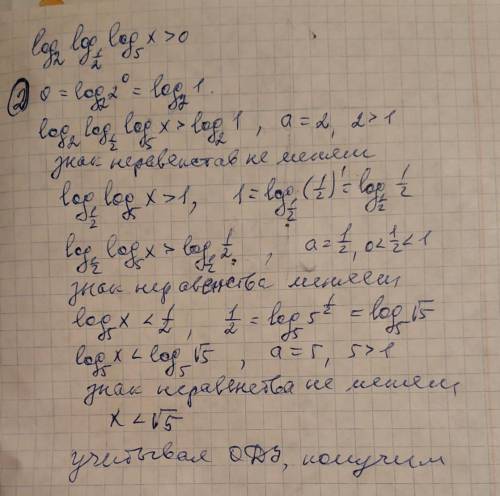 log₂ log_{1/2} log₅ x > 0
② 0 = log₂ 2⁰ = log₂ 1.
log₂ log_{1/2} log₅ x > log₂ 1, a = 2, 2 > 1
знак неравенстав не меняем
log_{1/2} log₅ x > 1, 1 = log_{1/2} (1/2)¹ = log_{1/2} 1/2
log_{1/2} log₅ x > log_{1/2} 1/2, a = 1/2, 0 < 1/2 < 1
знак неравенства меняем
log₅ x < 1/2, 1/2 = log₅ 5^{1/2} = log₅ √5
log₅ x < log₅ √5, a = 5, 5 > 1
знак неравенства не меняем
x < √5
учитывая ОДЗ, получим